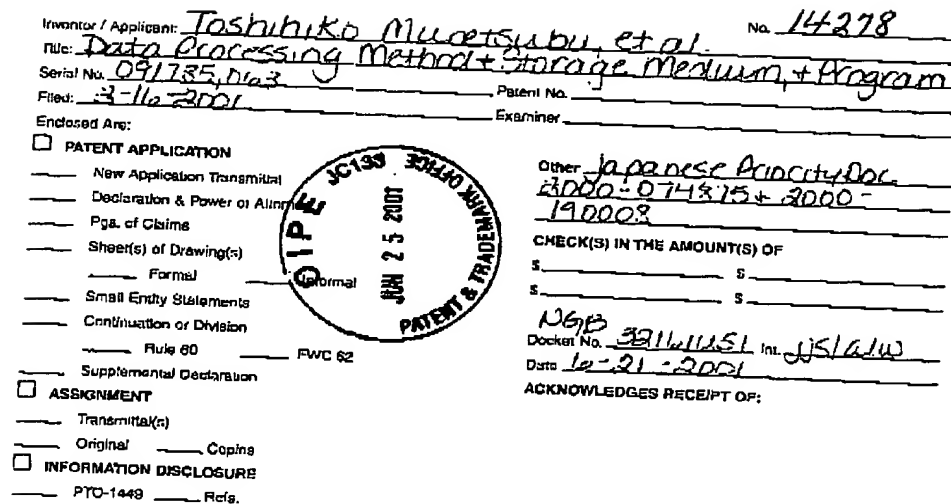 Inventor / Applicant: Toshihiko Munetsubu, et al. No. 14278
Title: Data Processing Method + Storage Medium, + Program
Serial No. 09/785,
Patent No.
Filed: 3-16-2001
Examiner
Enclosed Are:
PATENT APPLICATION
New Application Transmittal
Declaration & Power of
Pgs. of Claims
Sheet(s) of Drawing(s)
Formal Informal
Small Entity Statements
Continuation or Division
Rule 60 FWC 62
Supplemental Declaration
ASSIGNMENT
Transmittal(s)
Original Copies
INFORMATION DISCLOSURE
PTO-1449 Refs.
OIPE JC133
JUN 25 2001
PATENT & TRADEMARK OFFICE
Other Japanese Priority Doc.
2000-074875 + 2000-
190008
CHECK(S) IN THE AMOUNT(S) OF
$ $
$ $
NGB
Docket No. Int. JJS/AJW
Date 6-21-2001
ACKNOWLEDGES RECEIPT OF: